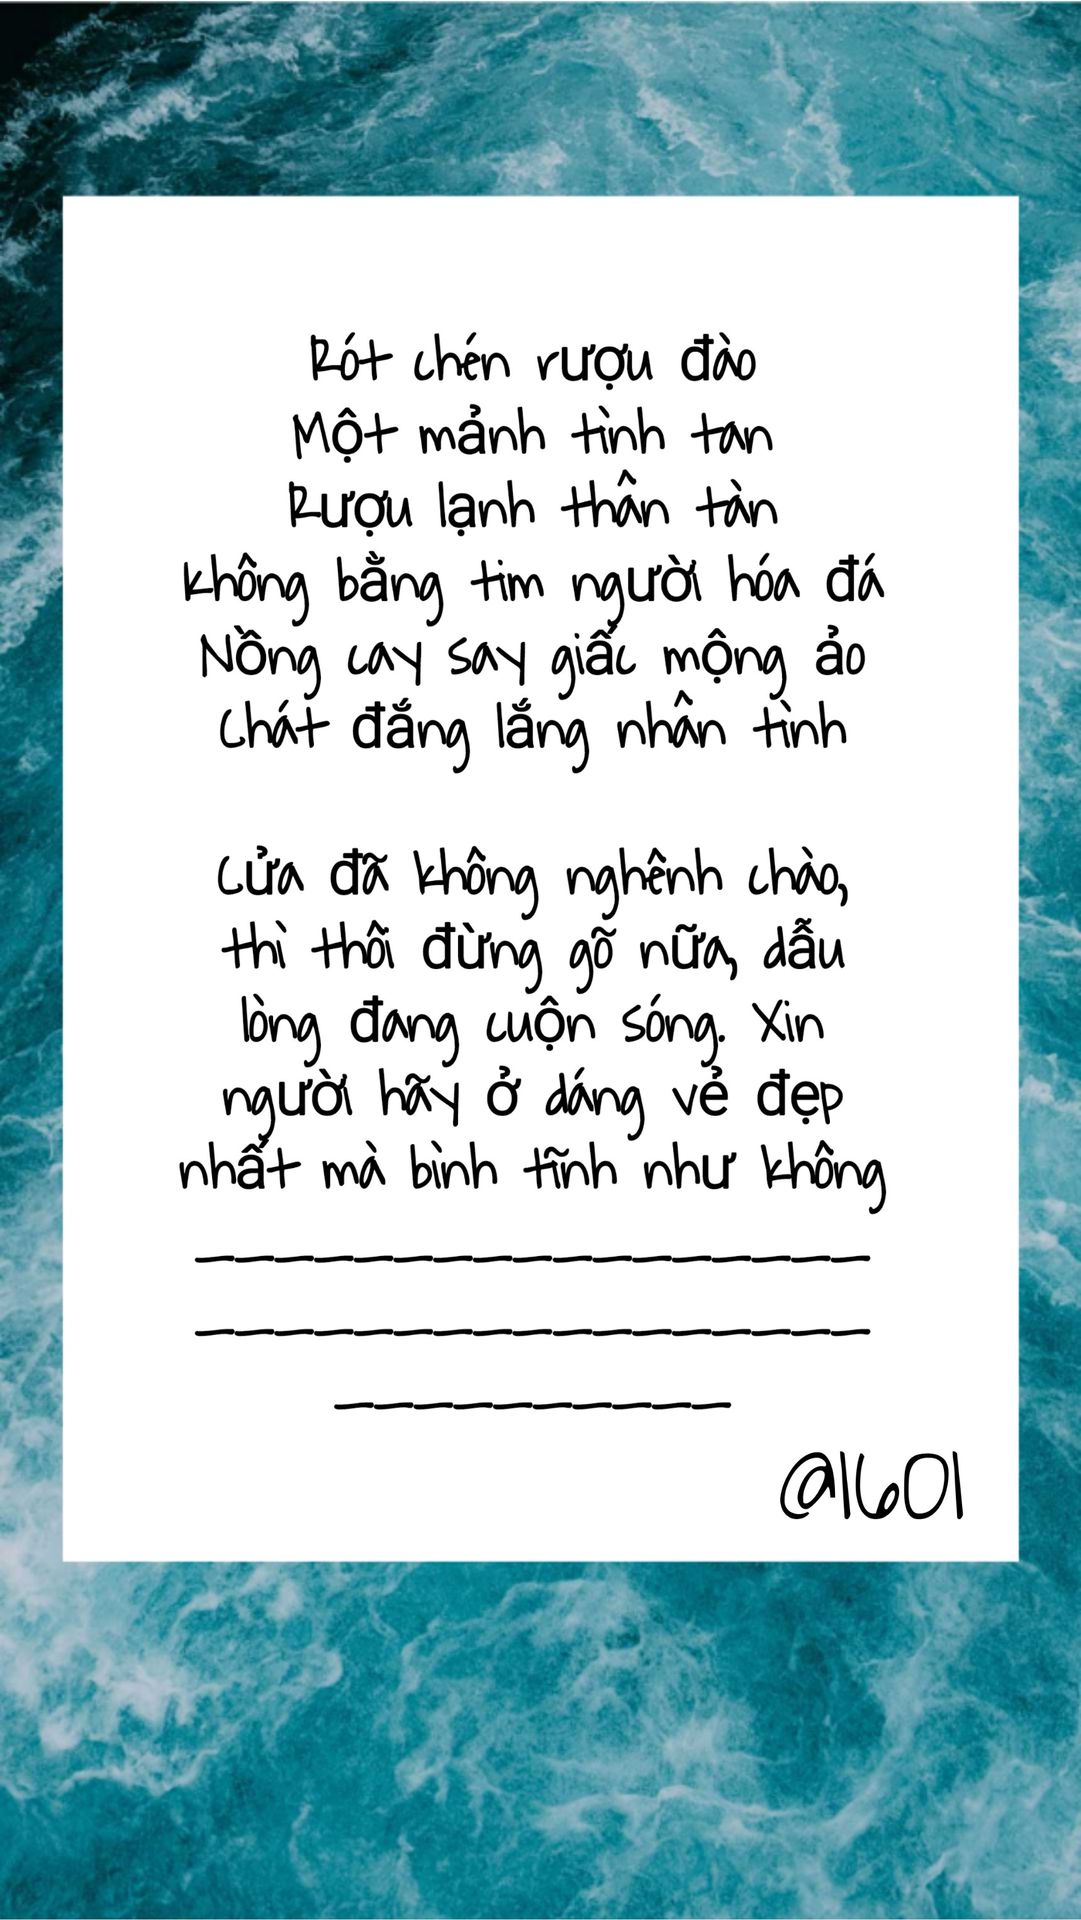 Rót chén rượu đào
Một mảnh tình tan
Rượu lạnh thân tàn
Không bằng tim người hóa đá
Nồng cay say giấc mộng ảo
Chát đắng lắng nhân tình
Cửa đã không nghênh chào,
thì thôi đừng gõ nữa, dẫu
lòng đang cuộn sóng. Xin
người hãy ở dáng vẻ đẹp
nhất mà bình tĩnh như không
_________________
_________________
__________
@1601